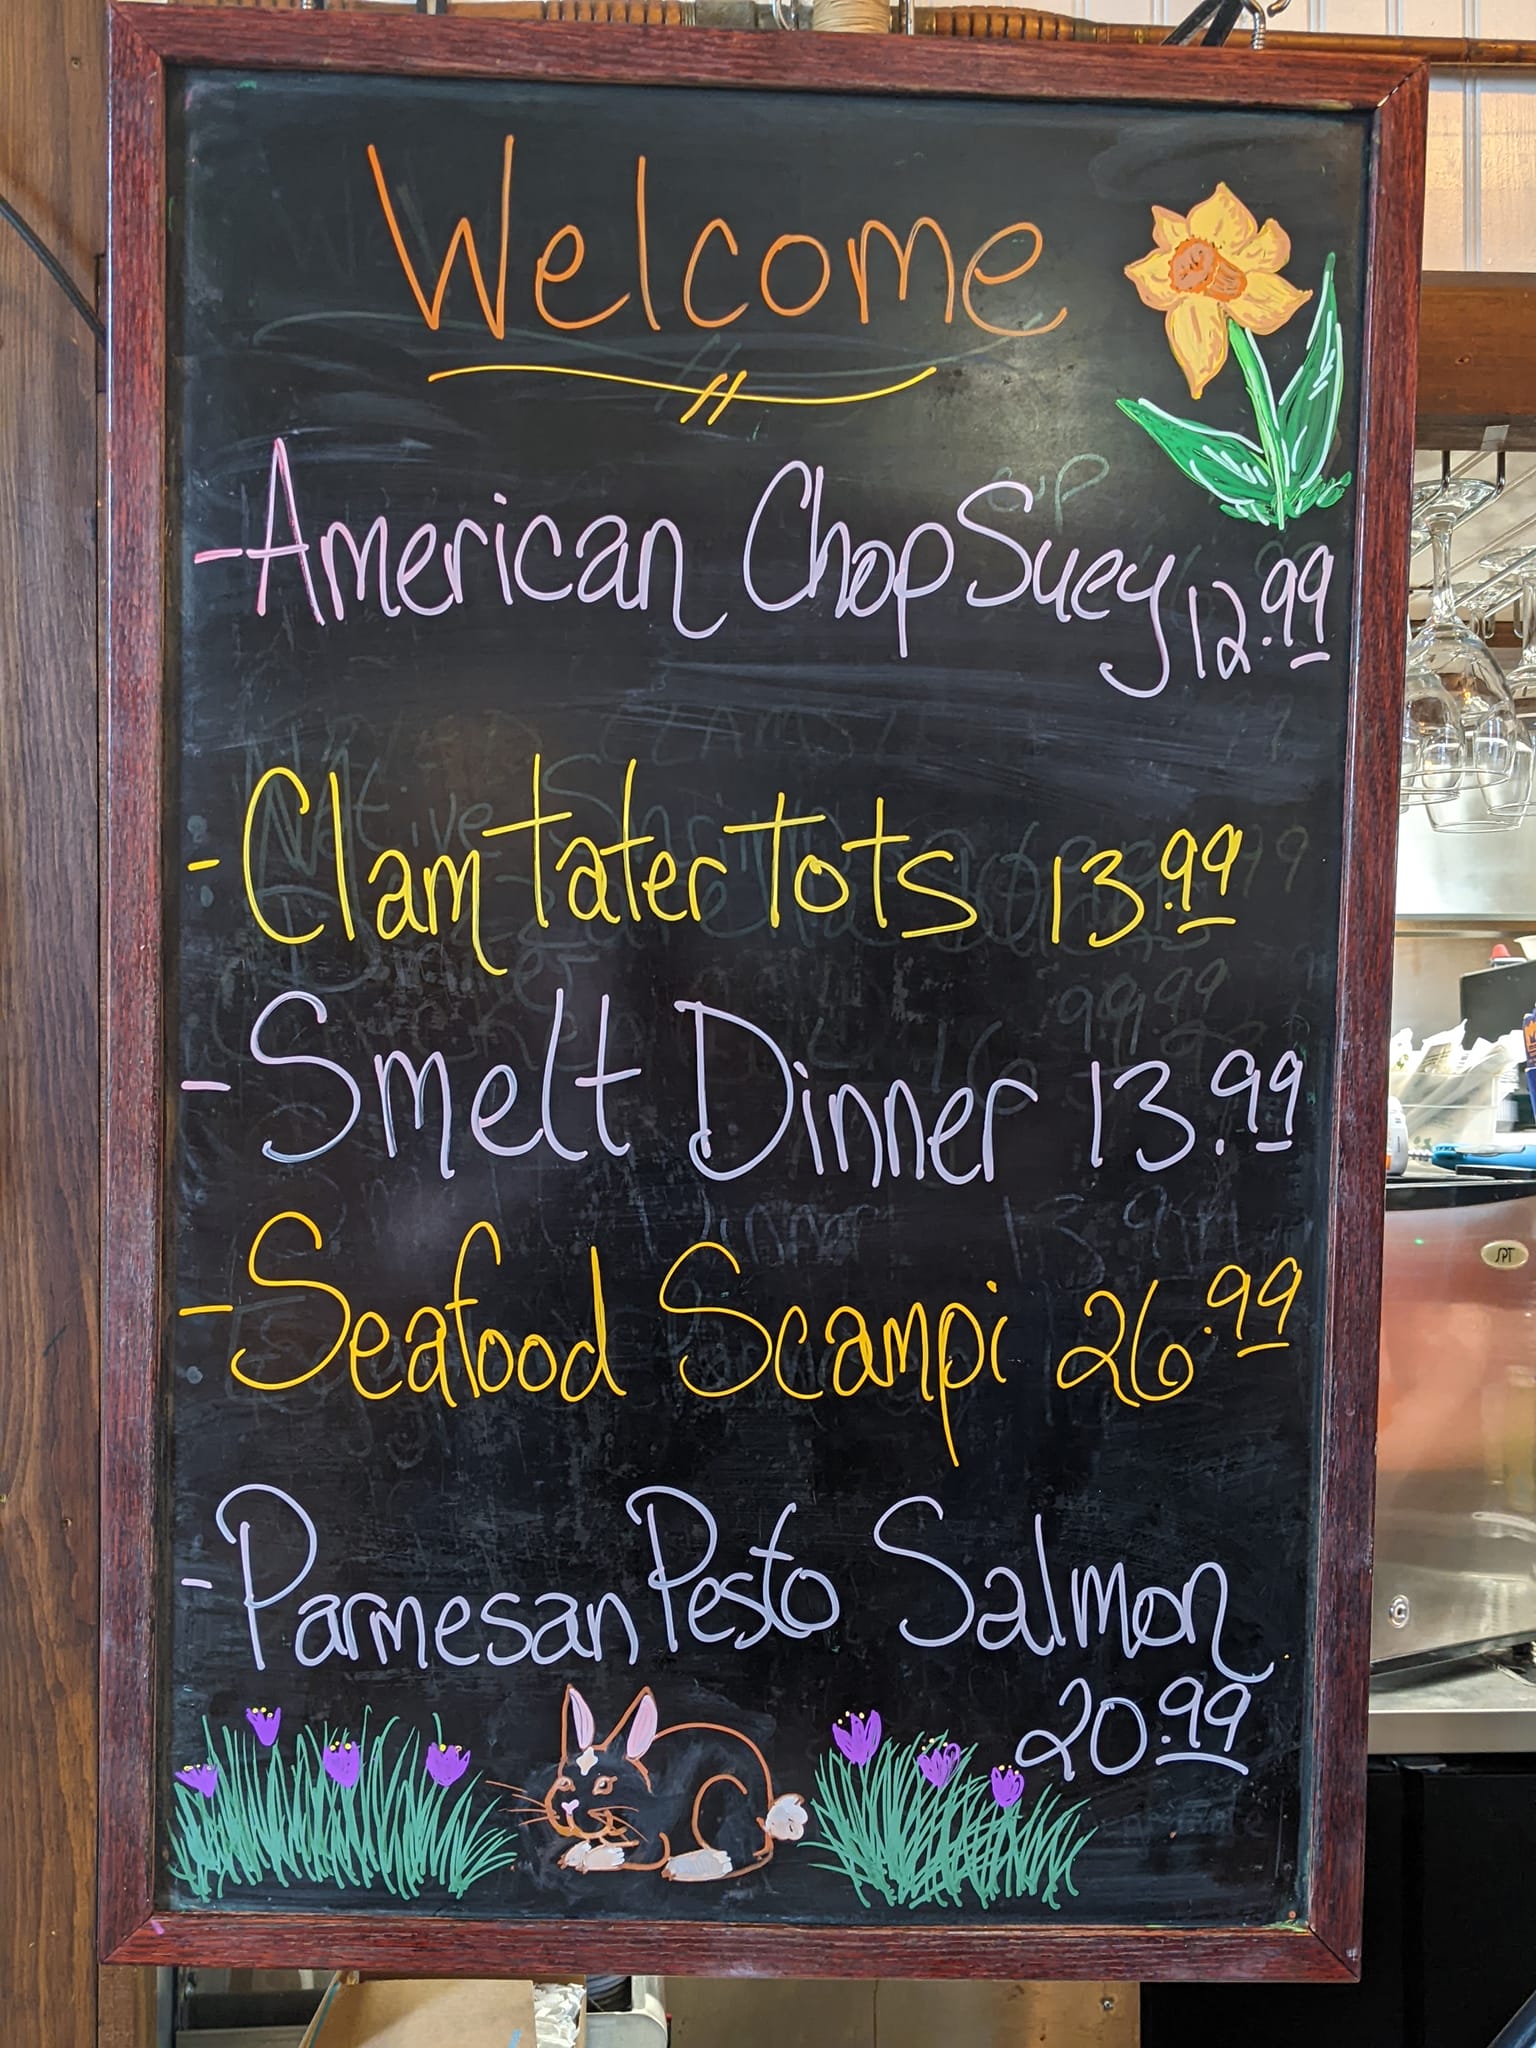 Welcome
- American Chop Suey 12.99
- Clam Tater Tots 13.99
- Smelt Dinner 13.99
- Seafood Scampi 26.99
- Parmesan Pesto Salmon
20.99
SPT